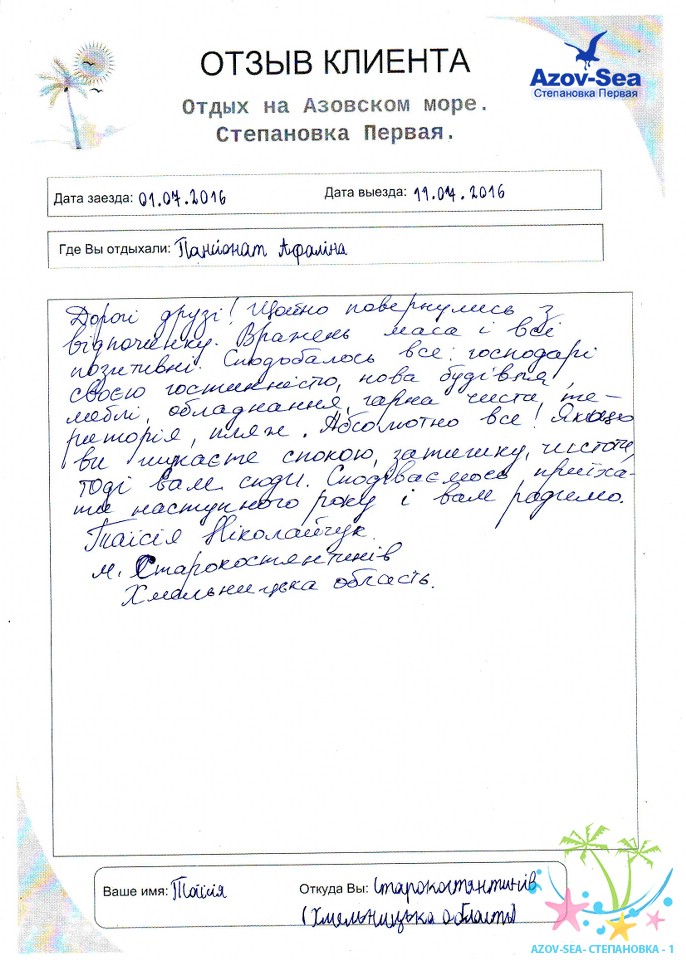 ОТЗЫВ КЛИЕНТА
Azov-Sea
Степановка Первая
Отдых на Азовском море.
Степановка Первая.
Дата заезда: 01.07.2016 Дата выезда: 11.07.2016
Где Вы отдыхали: Пансіонат Афаліна
Дорогі друзі! Щойно повернулись з
відпочинку. Вражень маса і всі
позитивні. Сподобалось все: господарі
своєю гостинністю, нова будівля,
меблі, обладнання, гарна чиста те-
риторія, пляж. Абсолютно все! Якщо
ви шукаєте спокою, затишку, чистоти,
тоді вам сюди. Сподіваємось приїха-
ти наступного року і вам радимо.
Таїсія Ніколайчук.
м. Старокостянтинів
Хмельницька область.
Ваше имя: Таїсія Откуда Вы: Старокостянтинів
(Хмельницька область)
AZOV-SEA- СТЕПАНОВКА - 1